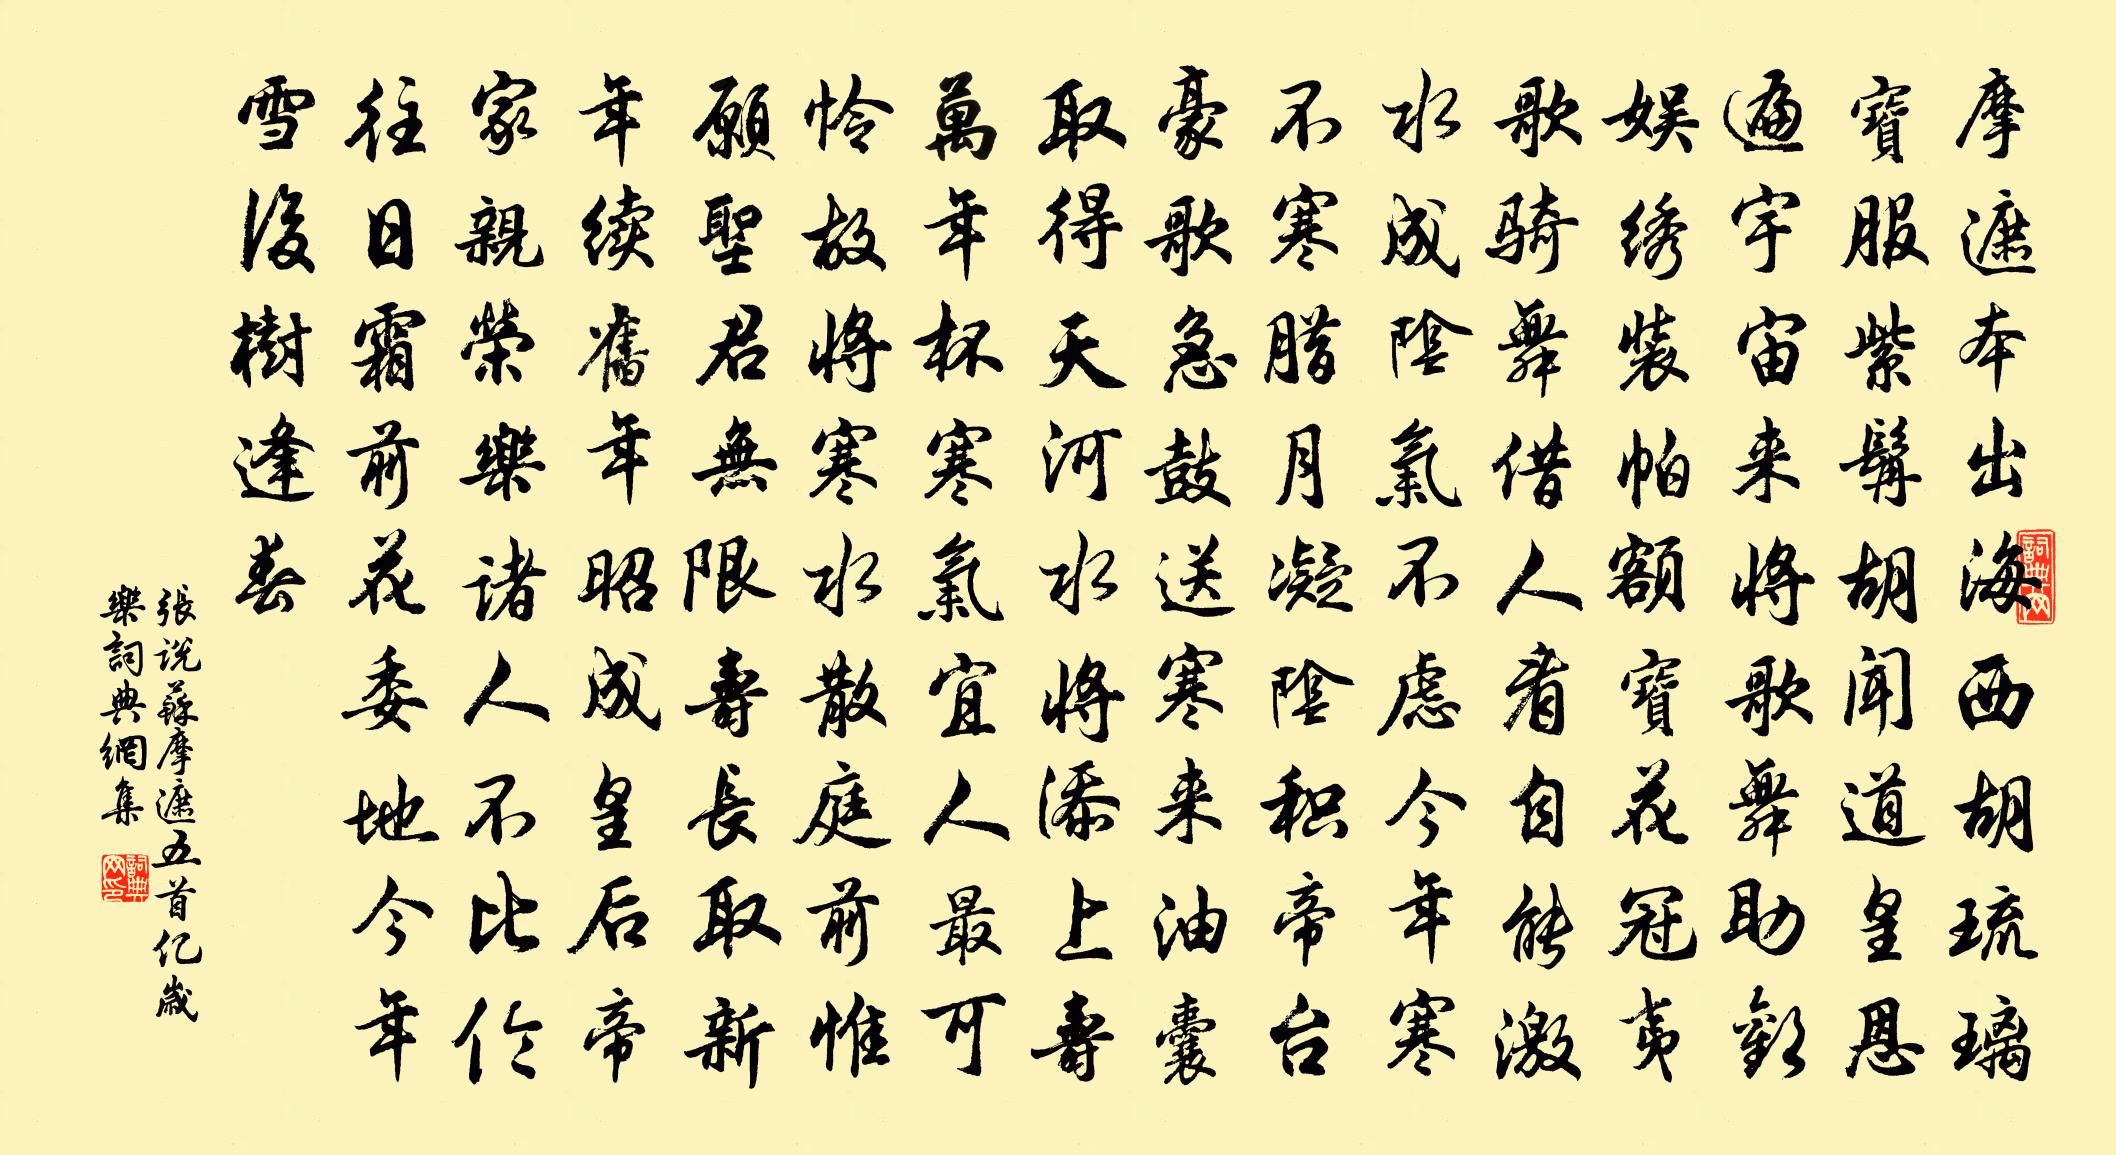 摩遮本出海西胡琉璃
寶服紫髯胡聞道皇恩
遍宇宙来將歌舞助歡
娱绣装帕额寶花冠夷
歌骑舞借人看自能激
水成陰氣不虑今年寒
不寒腊月凝陰积帝台
豪歌急鼓送寒来油囊
取得天河水將添上壽
萬年杯寒氣宜人最可
怜故將寒水散庭前惟
願聖君無限壽長取新
年续舊年昭成皇后帝
家親榮樂諸人不比伦
往日霜前花委地今年
雪後樹逢春
張说蘇摩遮五首亿歲
樂詞典網集
詞典网
詞典网印